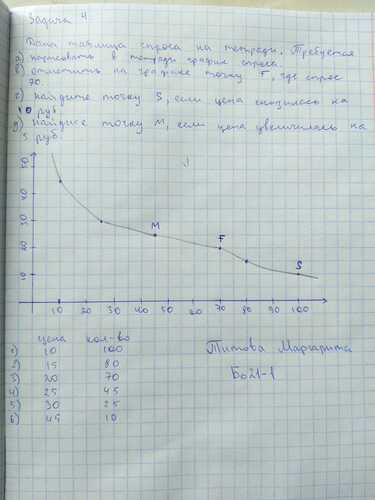 Задача 4
Дана таблица спроса на тетради. Требуется
а) нарисовать в тетради график спроса.
в) отметить на графике точку F, где спрос
70.
г) найдите точку S, если цена снизилась на
10 руб.
д) найдите точку М, если цена увеличилась на
5 руб.
50
40
30
20
10
M
F
S
10 20 30 40 50 60 70 80 90 100
цена кол-во
1) 10 100
2) 15 80
3) 20 70
4) 25 45
5) 30 25
6) 45 10
Титова Маргарита
Бо21-1